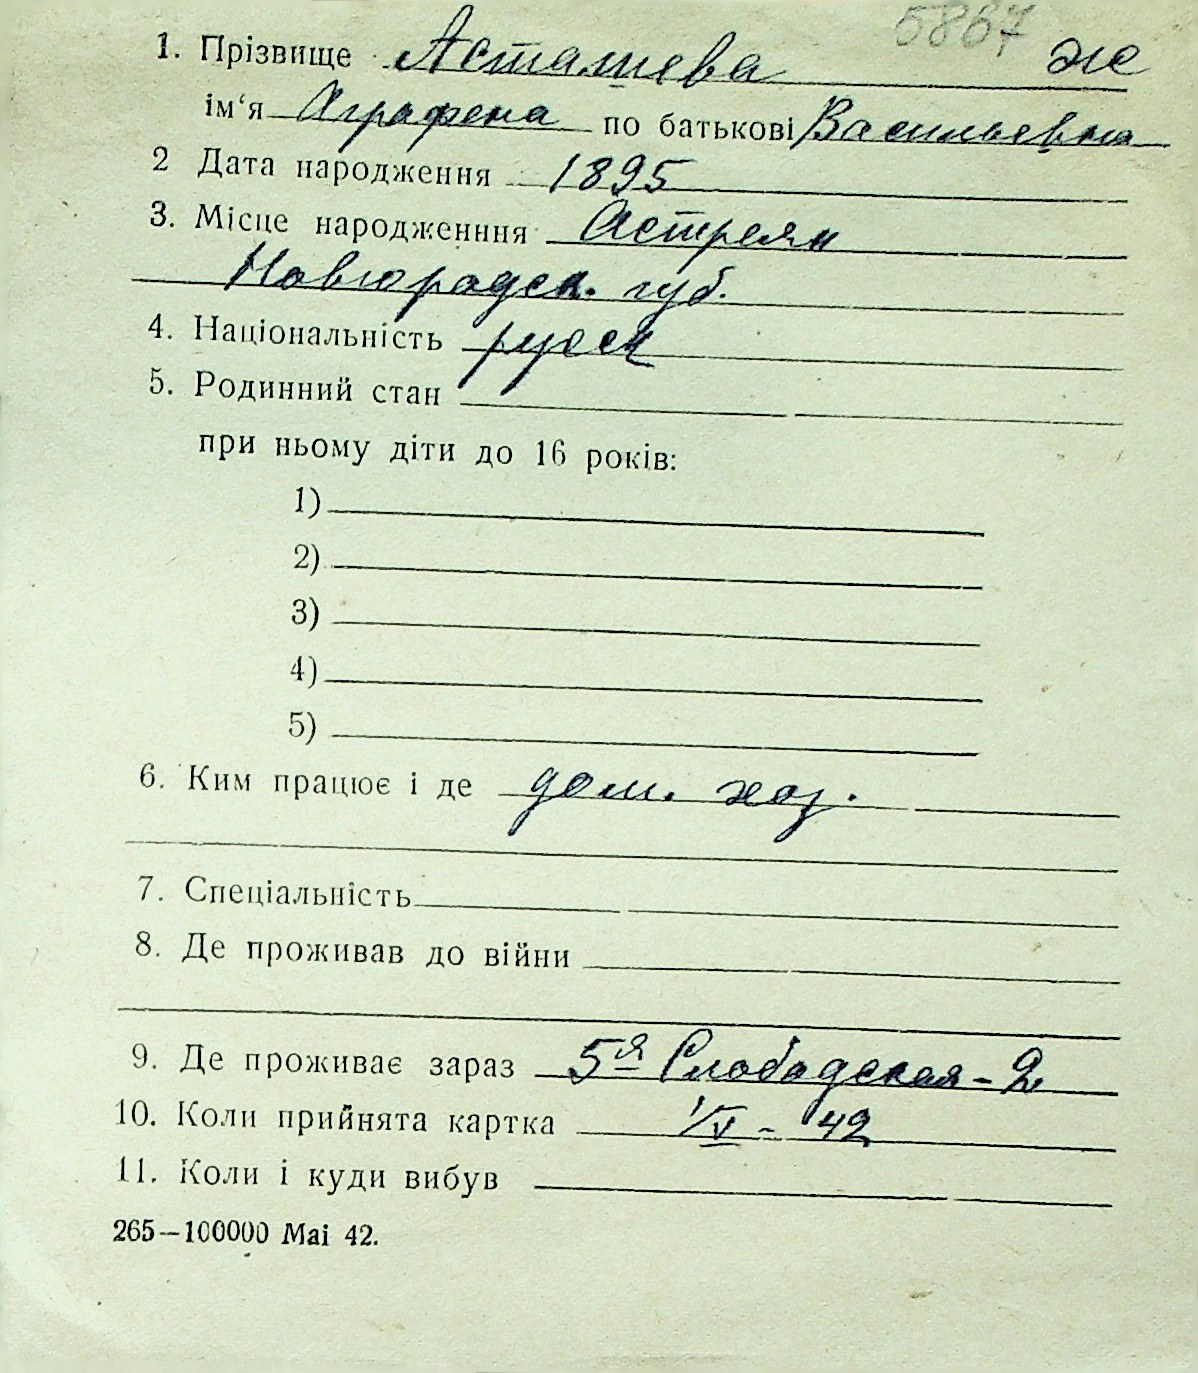 5867
1. Прізвище Асташева ж
ім‘я Аграфена по батькові Васильевна
2 Дата народження 1895
3. Місце народженння Астрелян
Новгородск. губ.
4. Національність русск
5. Родинний стан
при ньому діти до 16 років:
1)
2)
3)
4)
5)
6. Ким працює і де дом. хоз.
7. Спеціальність
8. Де проживав до війни
9. Де проживає зараз 5я Слободская - 2
10. Коли прийнята картка 1/V - 42
11. Коли і куди вибув
265—100000 Маі 42.